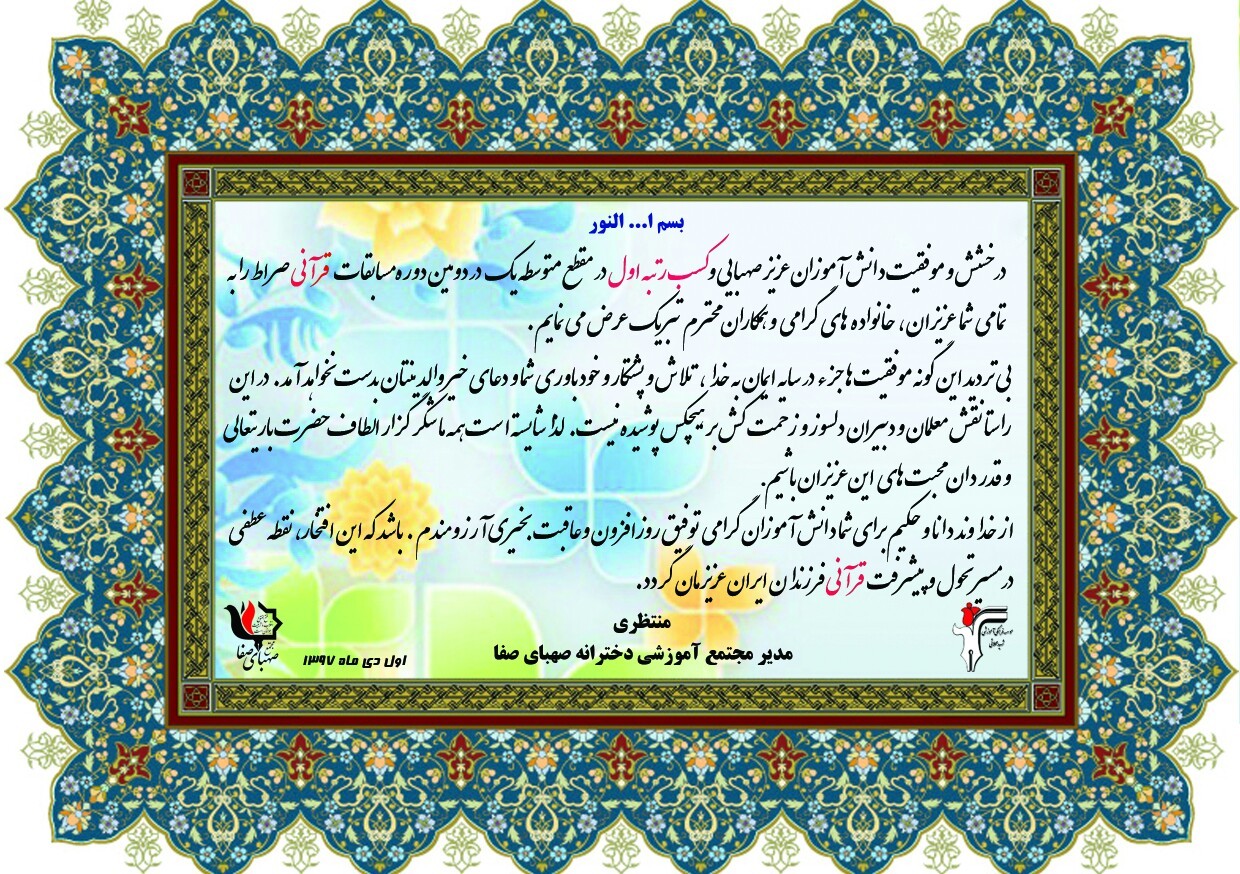 بسم ا... النور
درخشش و موفقیت دانش آموزان عزیز صهبایی و کسب رتبه اول در مقطع متوسطه یک در دومین دوره مسابقات قرآنی صراط را به
تمامی شما عزیزان، خانواده های گرامی و همکاران محترم تبریک عرض می نمایم.
بی تردید این گونه موفقیت ها جزء در سایه ایمان به خدا، تلاش و پشتکار و خودباوری شما و دعای خیر والدینتان بدست نخواهد آمد. در این
راستا نقش معلمان و دبیران دلسوز و زحمت کش بر هیچکس پوشیده نیست. لذا شایسته است همه ما شکرگزار الطاف حضرت باریتعالی
و قدردان محبت های این عزیزان باشیم.
از خداوند دانا و حکیم برای شما دانش آموزان گرامی توفیق روزافزون و عاقبت بخیری آرزومندم. باشد که این افتخار، نقطه عطفی
در مسیر تحول و پیشرفت قرآنی فرزندان ایران عزیزمان گردد.
منتظری
مدیر مجتمع آموزشی دخترانه صهبای صفا
اول دی ماه ۱۳۹۷
مجتمع
صهبای صفا